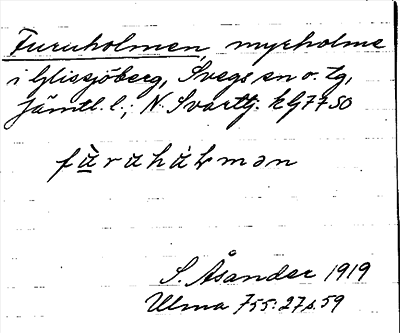 Furuholmen, myrholme
i Glissjöberg, Svegs sn o. tg,
Jämtl. l.; N. Svarttj. kG7750
S. Åsander 1919
Ulma 755:27 s. 59